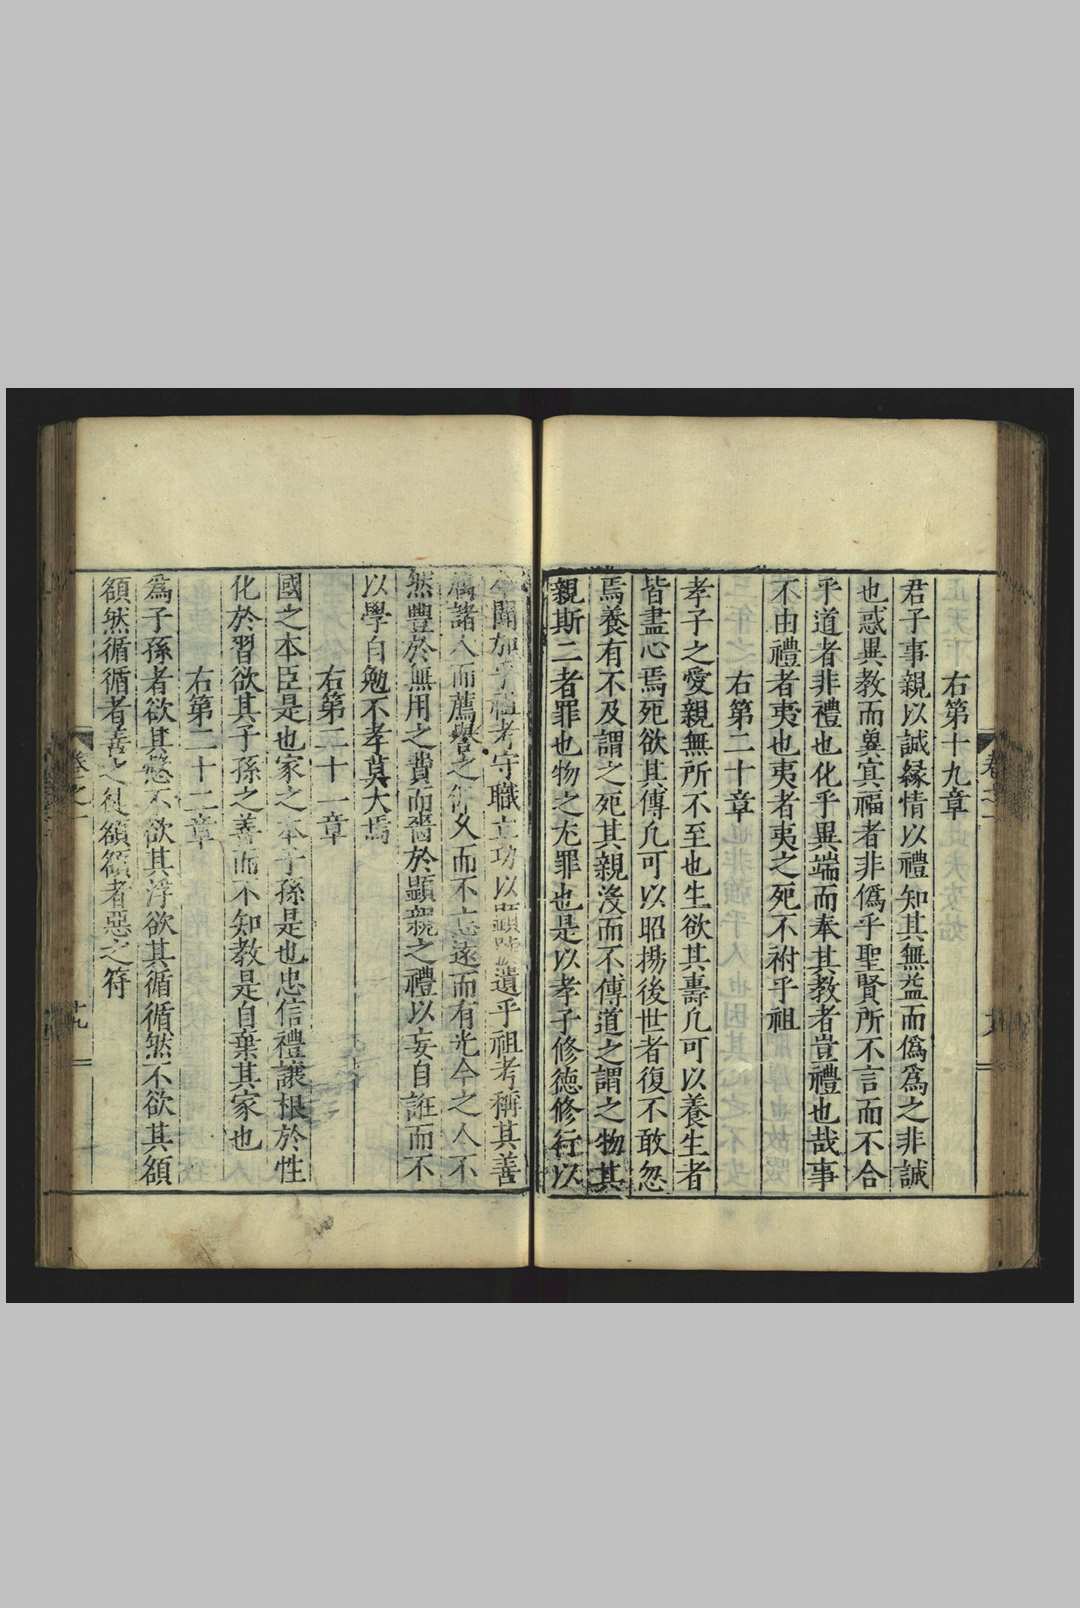 右第十九章
君子事親以誠緣情以禮知其無益而僞爲之非誠
也惑異教而兾冥福者非僞乎聖賢所不言而不合
乎道者非禮也化乎異端而奉其教者豈禮也哉事
不由禮者夷也夷者夷之死不祔乎祖
右第二十章
孝子之愛親無所不至也生欲其壽凡可以養生者
皆盡心焉死欲其傳凡可以昭揚後世者復不敢忽
焉養有不及謂之死其親没而不傳道之謂之物其
親斯二者罪也物之尤罪也是以孝子修德修行以
令聞加乎祖考守職立功以顯號遺乎祖考稱其善
屬諸人而薦譽之俾久而不忘遠而有光今之人不
然豐於無用之費而嗇於顯親之禮以妄自誑而不
以學自勉不孝莫大焉
右第二十一章
國之本臣是也家之本子孫是也忠信禮讓根於性
化於習欲其子孫之善而不知教是自棄其家也
右第二十二章
爲子孫者欲其慤不欲其浮欲其循循然不欲其額
額然循循者善之徒額額者惡之符
卷之一
十九